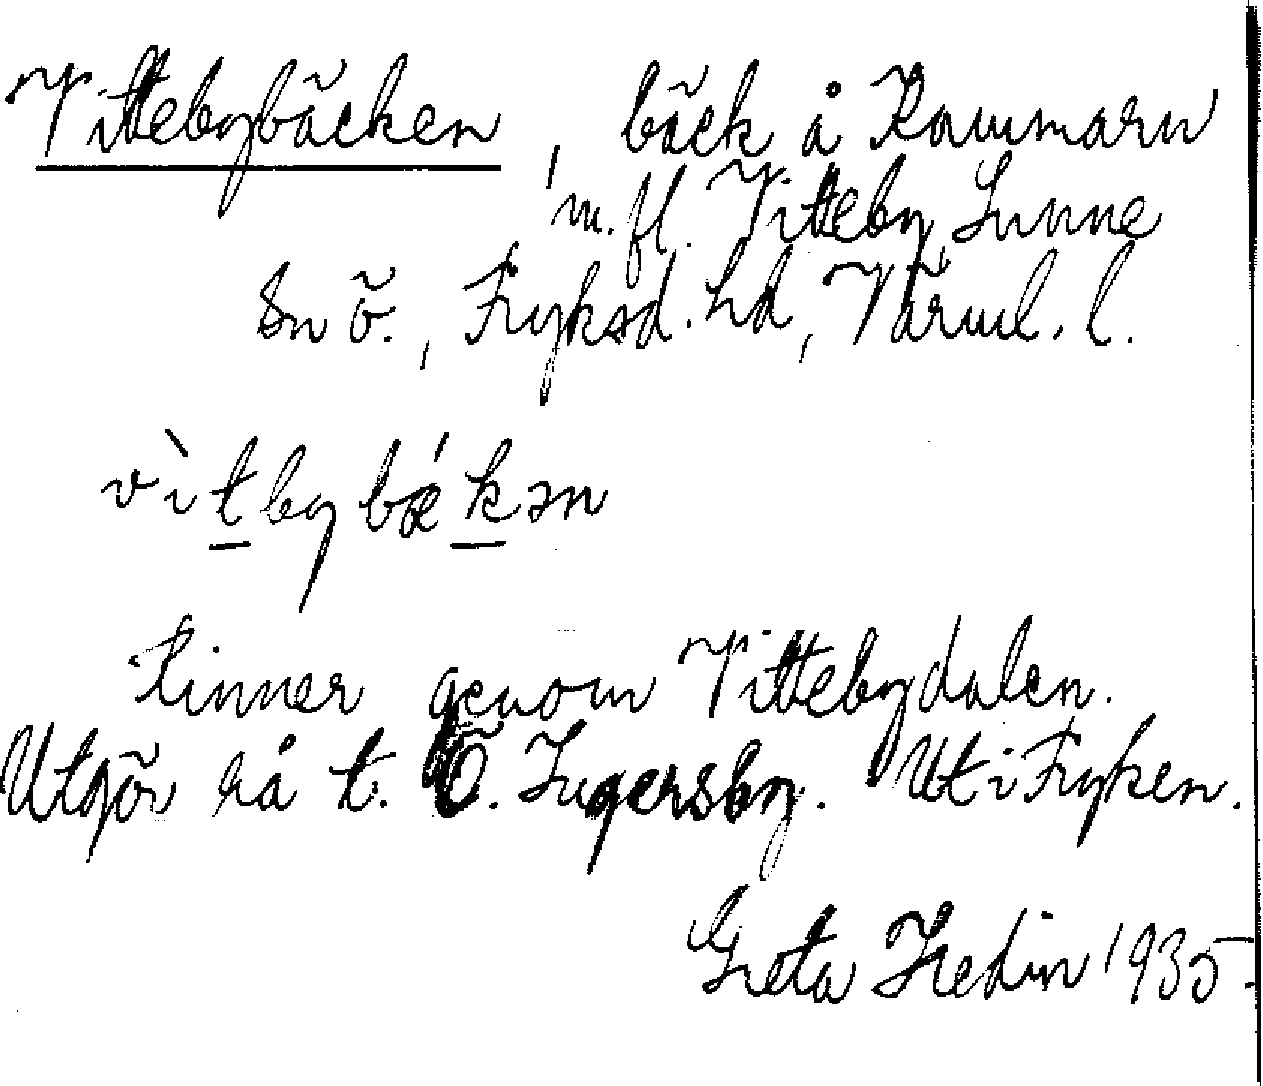 Vittebybäcken, bäck å Rammarn
m.fl. Vitteby, Sunne
sn ö., Fryksd. hd, Värml. l.
vìtbybǽkən
Rinner genom Vittebydalen.
Utgör rå t. Ö. Ingersby. Ut i Fryken.
Greta Hedin 1935.